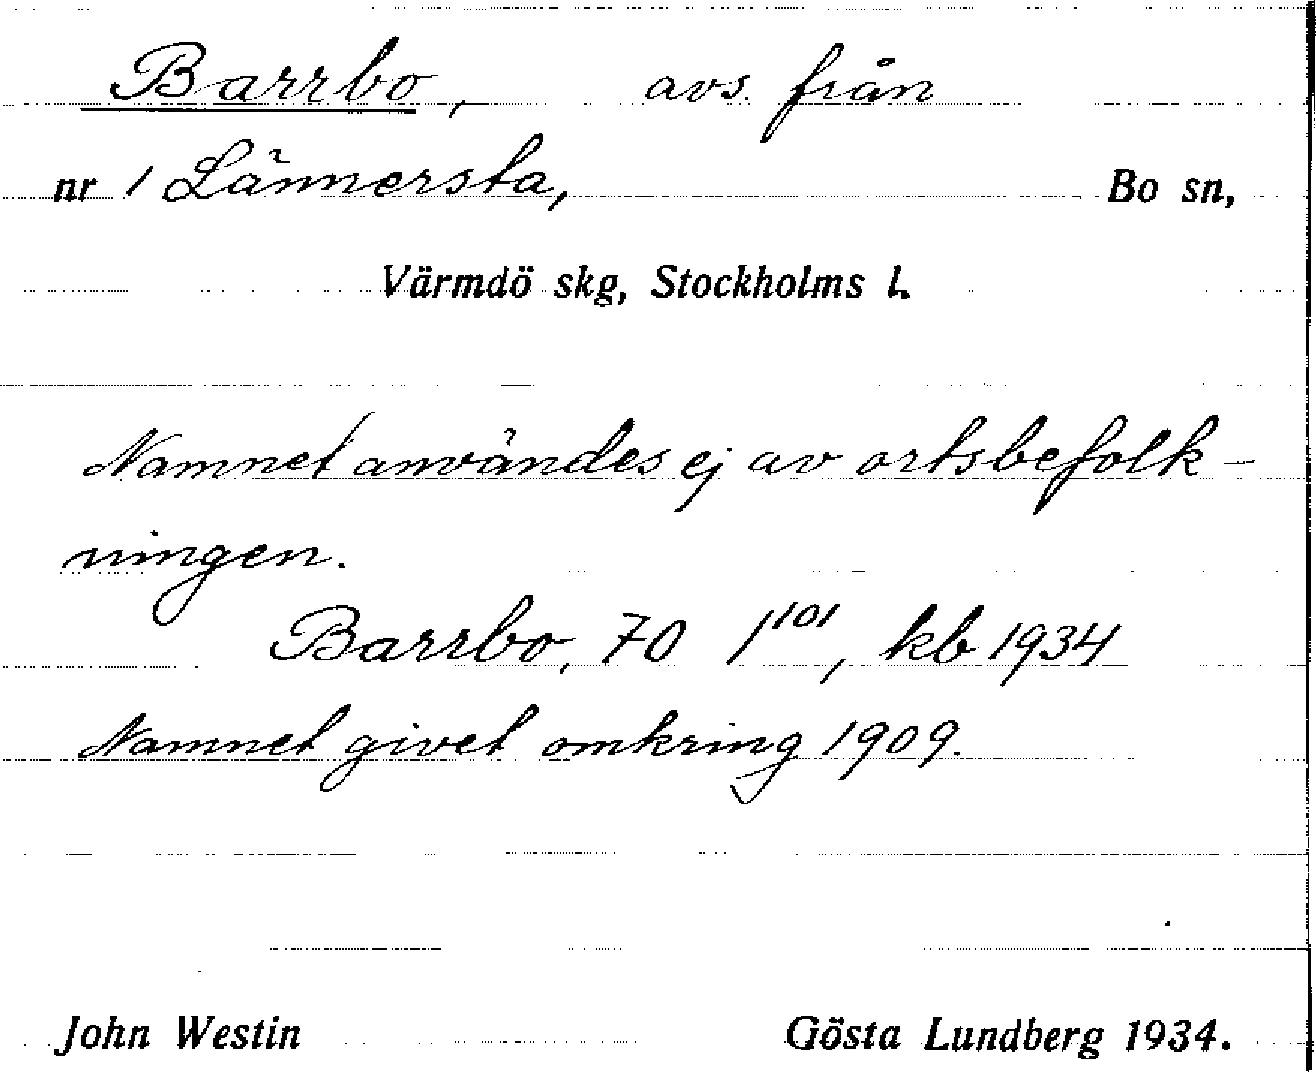 Barrbo, avs. från
nr 1 Lännersta, Bo sn,
Värmdö skg, Stockholms l.
Namnet användes ej av ortsbefolk-
ningen.
Barrbo, 70 1¹⁰¹, kb 1934
Namnet givet omkring 1909.
John Westin Gösta Lundberg 1934.